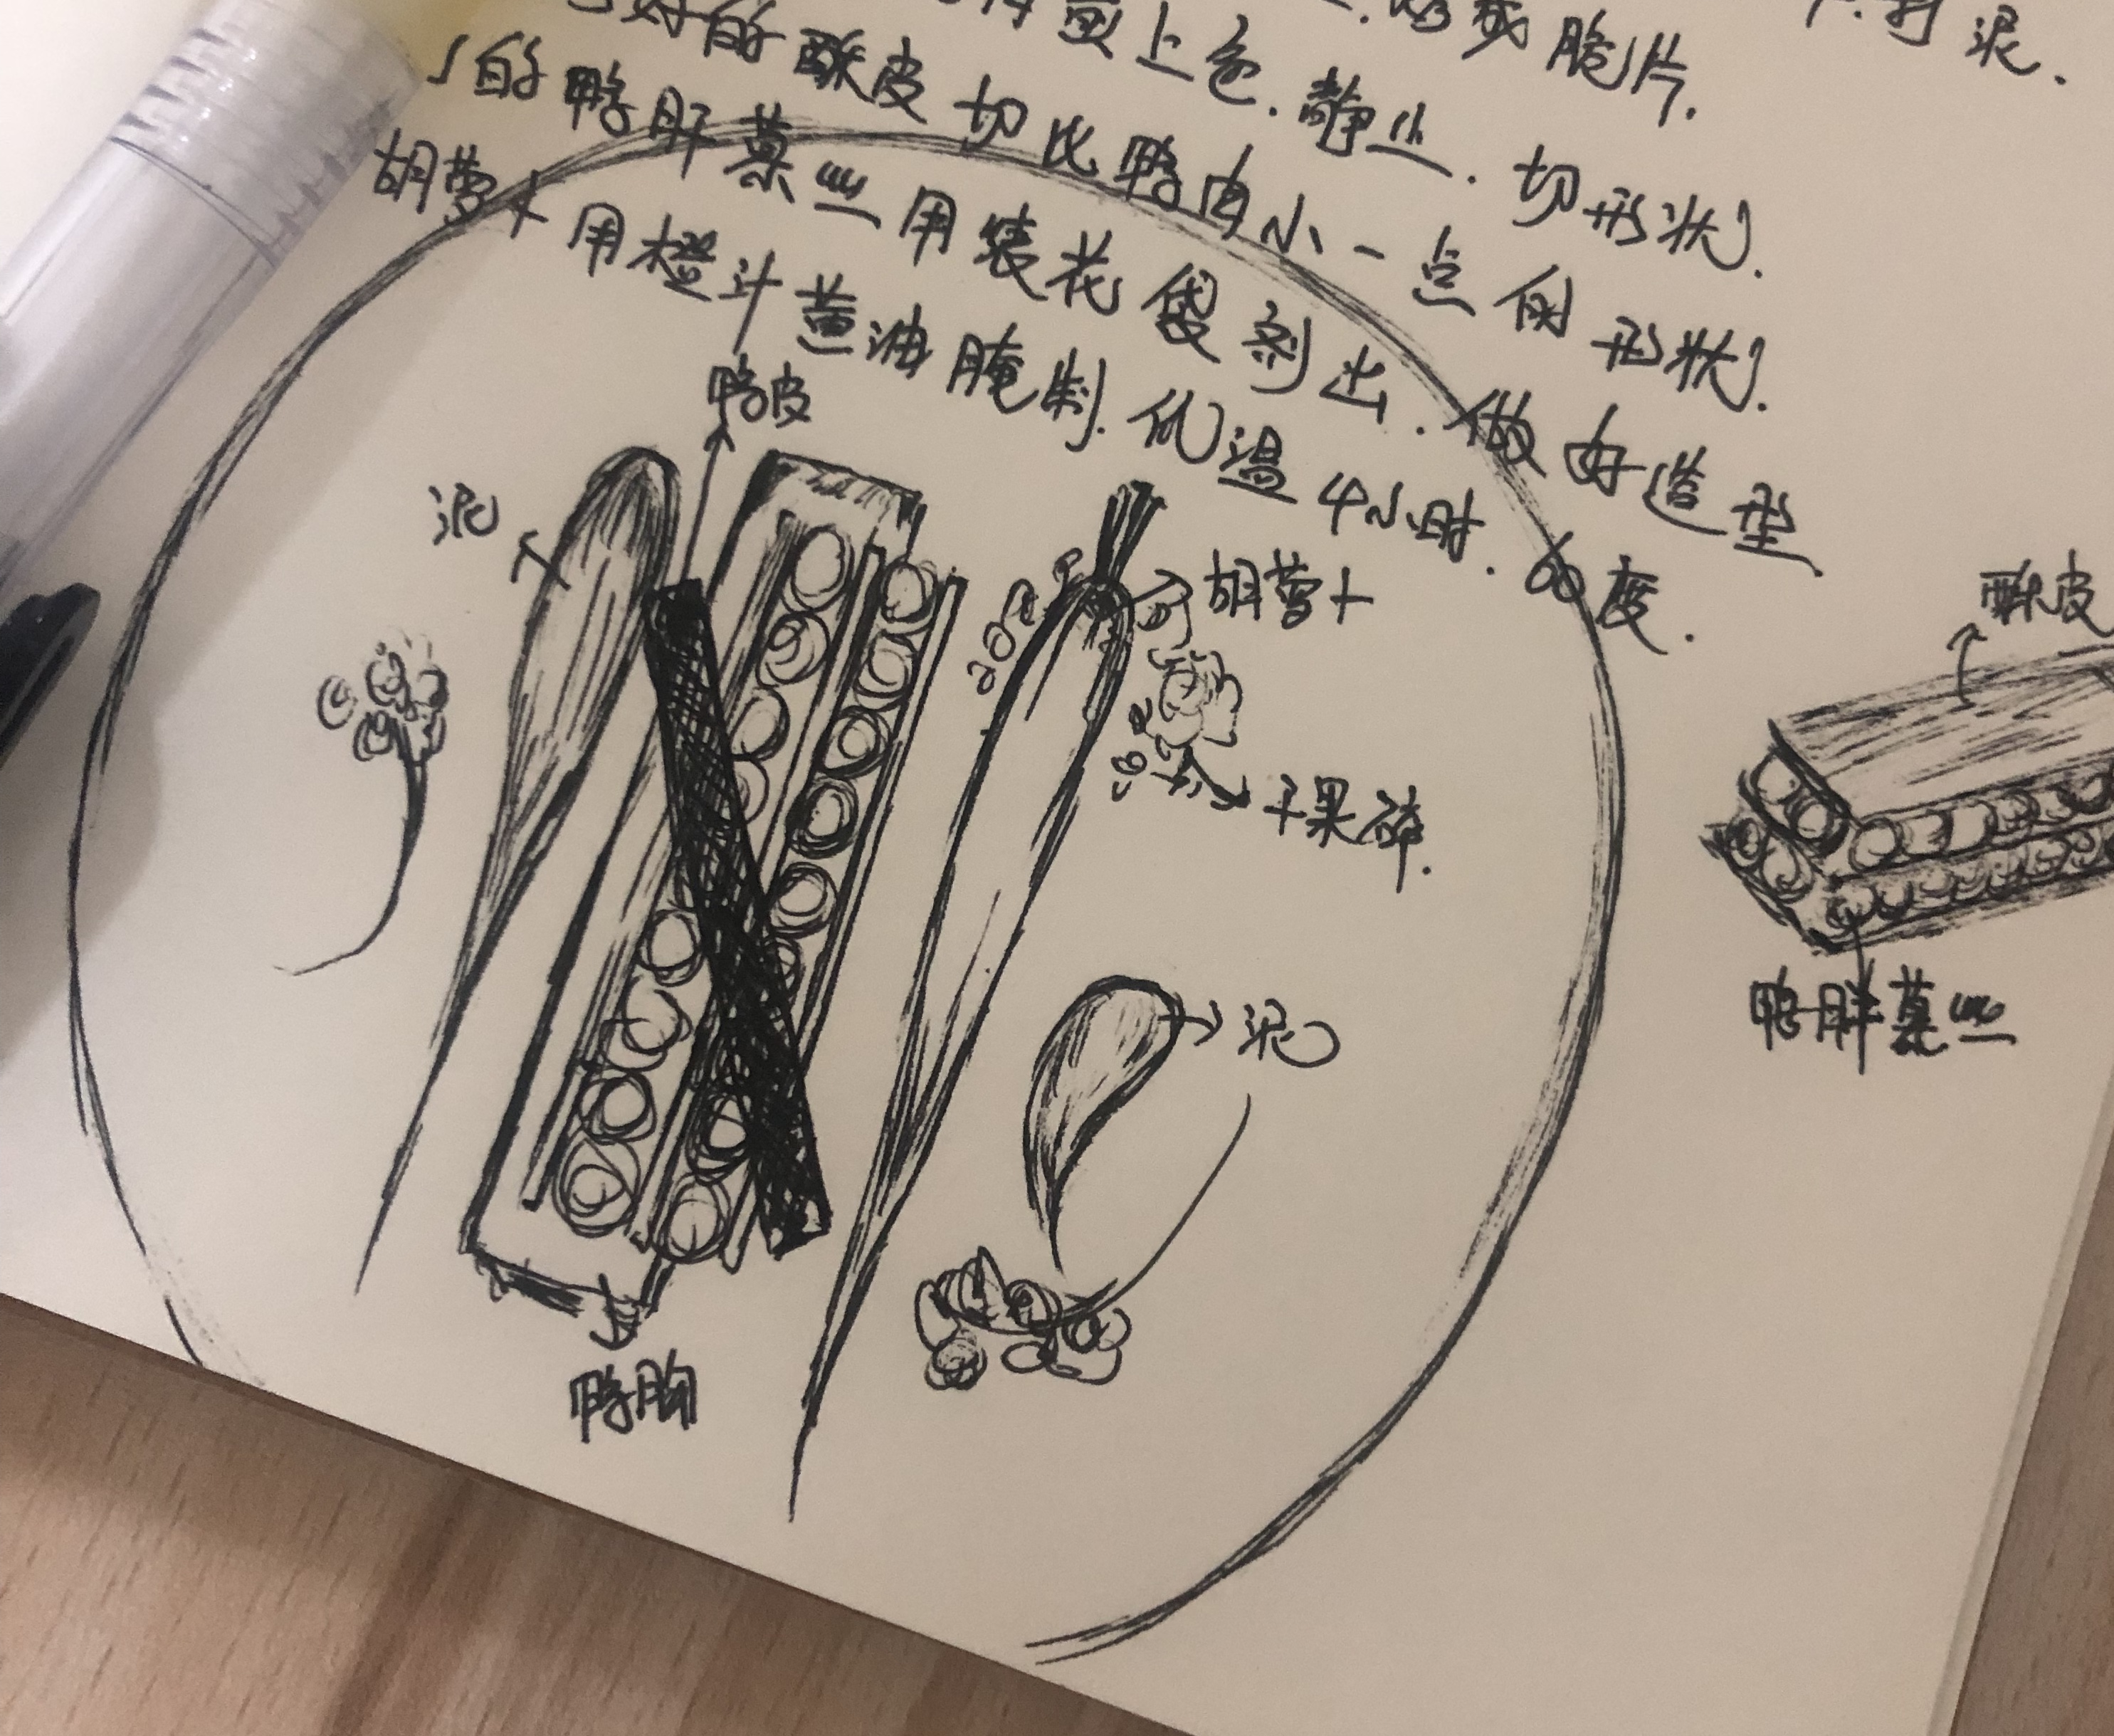 打泥.
上色. 静止. 切形状.
成脆片.
好的酥皮切比鸭肉小一点的形状.
的鸭肝慕丝用裱花袋挤出. 做好造型
胡萝卜用橙汁黄油腌制. 低温4小时. 60度.
鸭皮
泥
胡萝卜
酥皮
干果碎.
鸭肝慕丝
泥
鸭胸